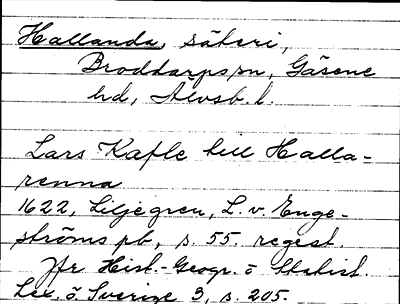 Hallanda, säteri,
Broddarps sn, Gäsene
hd, Älvsb. l.
Lars Kafle till Halla-
renna
1622, Liljegren, L. v. Enge-
ströms pb, s. 55. regest.
Jfr Hist.-Geogr. o Statist.
Lex. ö. Sverige 3, s. 205.